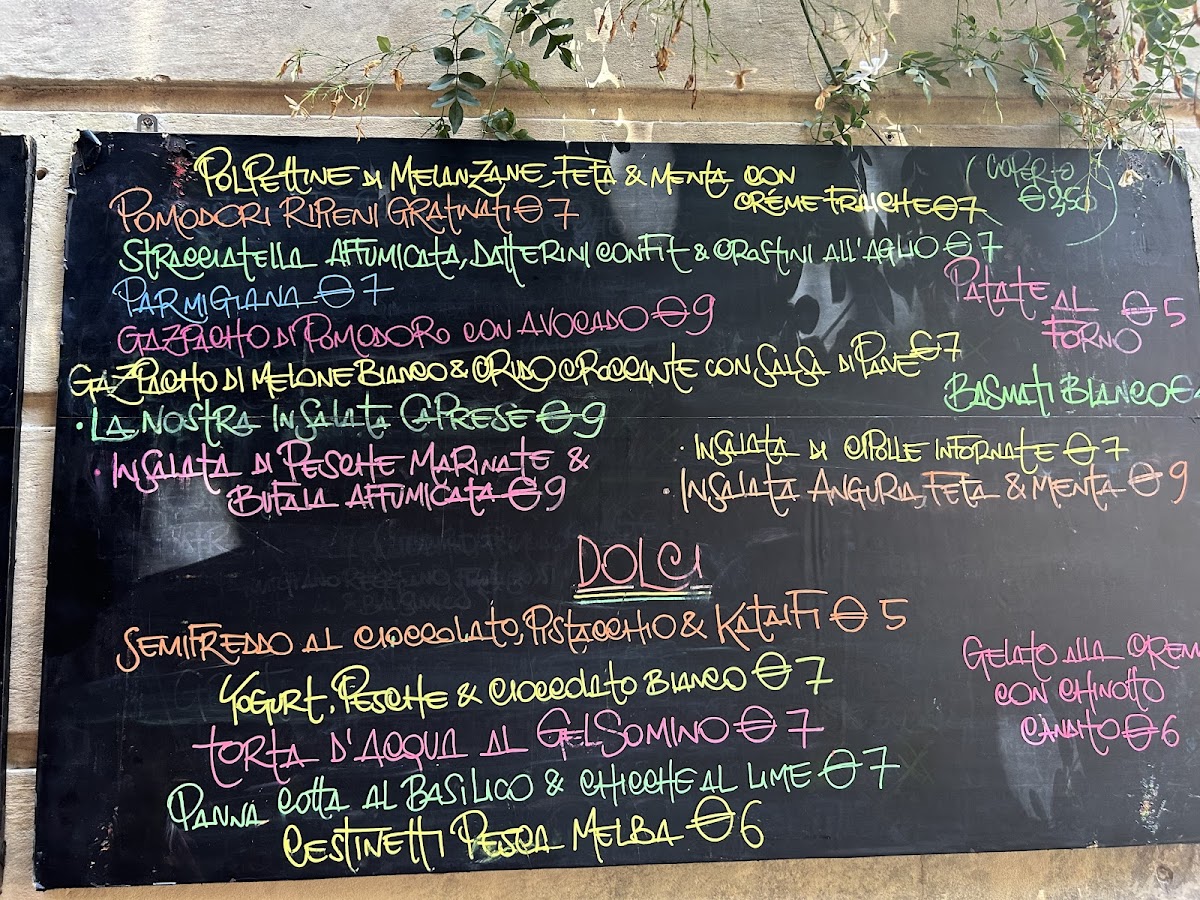 POLPETTINE DI MELANZANE, FETA & MENTA CON
CRÉME FRAICHE € 7
(COPERTO
€ 3,50)
POMODORI RIPIENI GRATINATI € 7
STRACCIATELLA AFFUMICATA, DATTERINI CONFIT & CROSTINI ALL'AGLIO € 7
PARMIGIANA € 7
PATATE AL
FORNO € 5
GAZPACHO DI POMODORO CON AVOCADO € 9
GAZPACHO DI MELONE BIANCO & CRUDO CROCCANTE CON SALSA DI PANE € 7
BASMATI BIANCO €
· LA NOSTRA INSALATA CAPRESE € 9
· INSALATA DI PESCHE MARINATE &
BUFALA AFFUMICATA € 9
· INSALATA DI CIPOLLE INFORNATE € 7
· INSALATA ANGURIA, FETA & MENTA € 9
DOLCI
SEMIFREDDO AL CIOCCOLATO, PISTACCHIO & KATAIFI € 5
YOGURT, PESCHE & CIOCCOLATO BIANCO € 7
TORTA D'ACQUA AL GELSOMINO € 7
PANNA COTTA AL BASILICO & CHICCHE AL LIME € 7
CESTINETTI PESCA MELBA € 6
GELATO ALLA CREM
CON CHINOTTO
CANDITO € 6